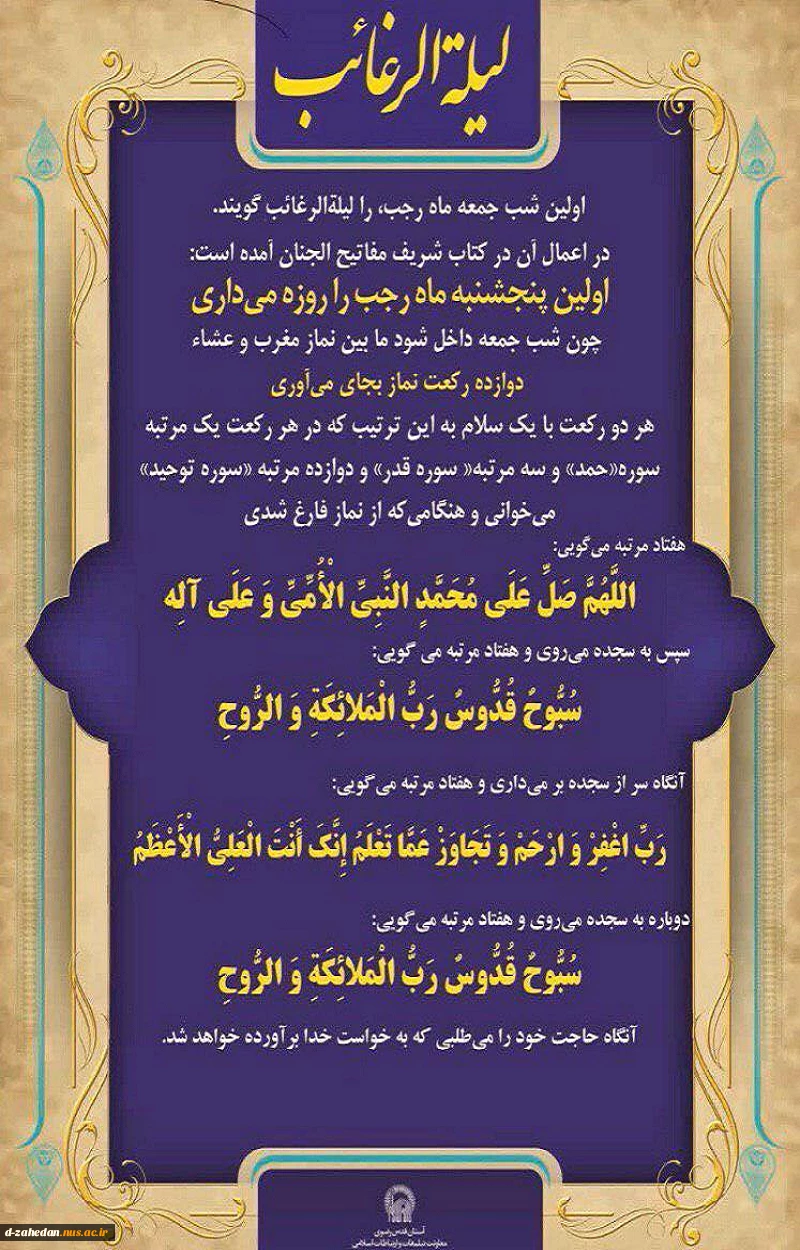 لیلة الرغائب
اولین شب جمعه ماه رجب، را لیلةالرغائب گویند.
در اعمال آن در کتاب شریف مفاتیح الجنان آمده است:
اولین پنجشنبه ماه رجب را روزه می‌داری
چون شب جمعه داخل شود ما بین نماز مغرب و عشاء
دوازده رکعت نماز بجای می‌آوری
هر دو رکعت با یک سلام به این ترتیب که در هر رکعت یک مرتبه
سوره«حمد» و سه مرتبه« سوره قدر» و دوازده مرتبه «سوره توحید»
می‌خوانی و هنگامی‌که از نماز فارغ شدی
هفتاد مرتبه می‌گویی:
اللَّهُمَّ صَلِّ عَلَى مُحَمَّدٍ النَّبِيِّ الْأُمِّيِّ وَ عَلَى آلِهِ
سپس به سجده می‌روی و هفتاد مرتبه می گویی:
سُبُّوحٌ قُدُّوسٌ رَبُّ الْمَلائِكَةِ وَ الرُّوحِ
آنگاه سر از سجده بر می‌داری و هفتاد مرتبه می‌گویی:
رَبِّ اغْفِرْ وَ ارْحَمْ وَ تَجَاوَزْ عَمَّا تَعْلَمُ إِنَّکَ أَنْتَ الْعَلِيُّ الْأَعْظَمُ
دوباره به سجده می‌روی و هفتاد مرتبه می‌گویی:
سُبُّوحٌ قُدُّوسٌ رَبُّ الْمَلائِكَةِ وَ الرُّوحِ
آنگاه حاجت خود را می‌طلبی که به خواست خدا برآورده خواهد شد.
آستان قدس رضوی
معاونت تبلیغات و ارتباطات اسلامی
d-zahedan.nus.ac.ir